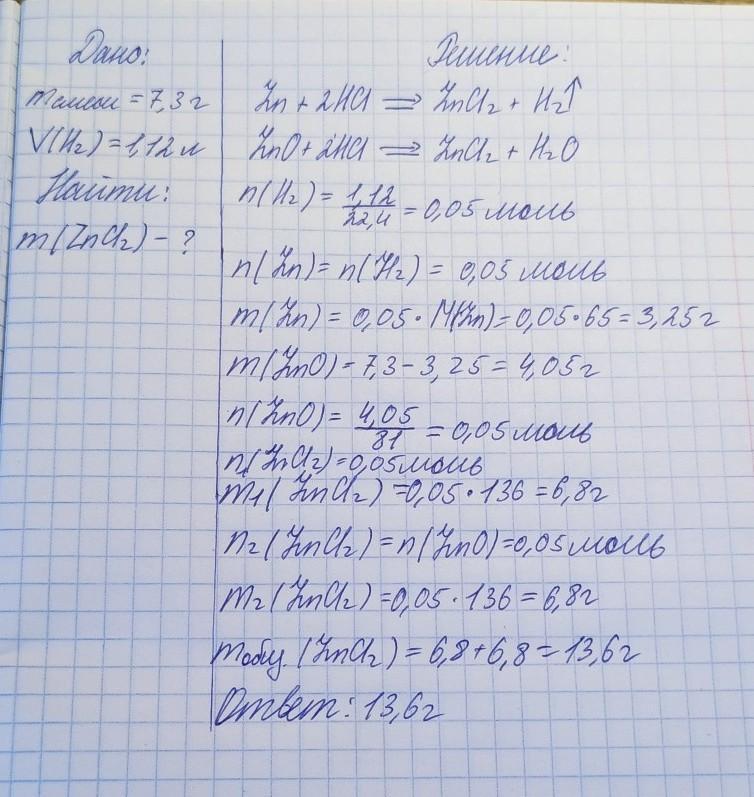 Дано:
mсмеси = 7,3 г
V(H₂) = 1,12 л
Найти:
m(ZnCl₂) - ?
Решение:
Zn + 2HCl ⟹ ZnCl₂ + H₂↑
ZnO + 2HCl ⟹ ZnCl₂ + H₂O
n(H₂) = 1,12/22,4 = 0,05 моль
n(Zn) = n(H₂) = 0,05 моль
m(Zn) = 0,05 · M(Zn) = 0,05 · 65 = 3,25 г
m(ZnO) - 7,3 - 3,25 = 4,05 г
n(ZnO) = 4,05/81 = 0,05 моль
n₁(ZnCl₂) = 0,05 моль
m₁(ZnCl₂) = 0,05 · 136 = 6,8 г
n₂(ZnCl₂) = n(ZnO) = 0,05 моль
m₂(ZnCl₂) = 0,05 · 136 = 6,8 г
mобщ. (ZnCl₂) = 6,8 + 6,8 = 13,6 г
Ответ: 13,6 г